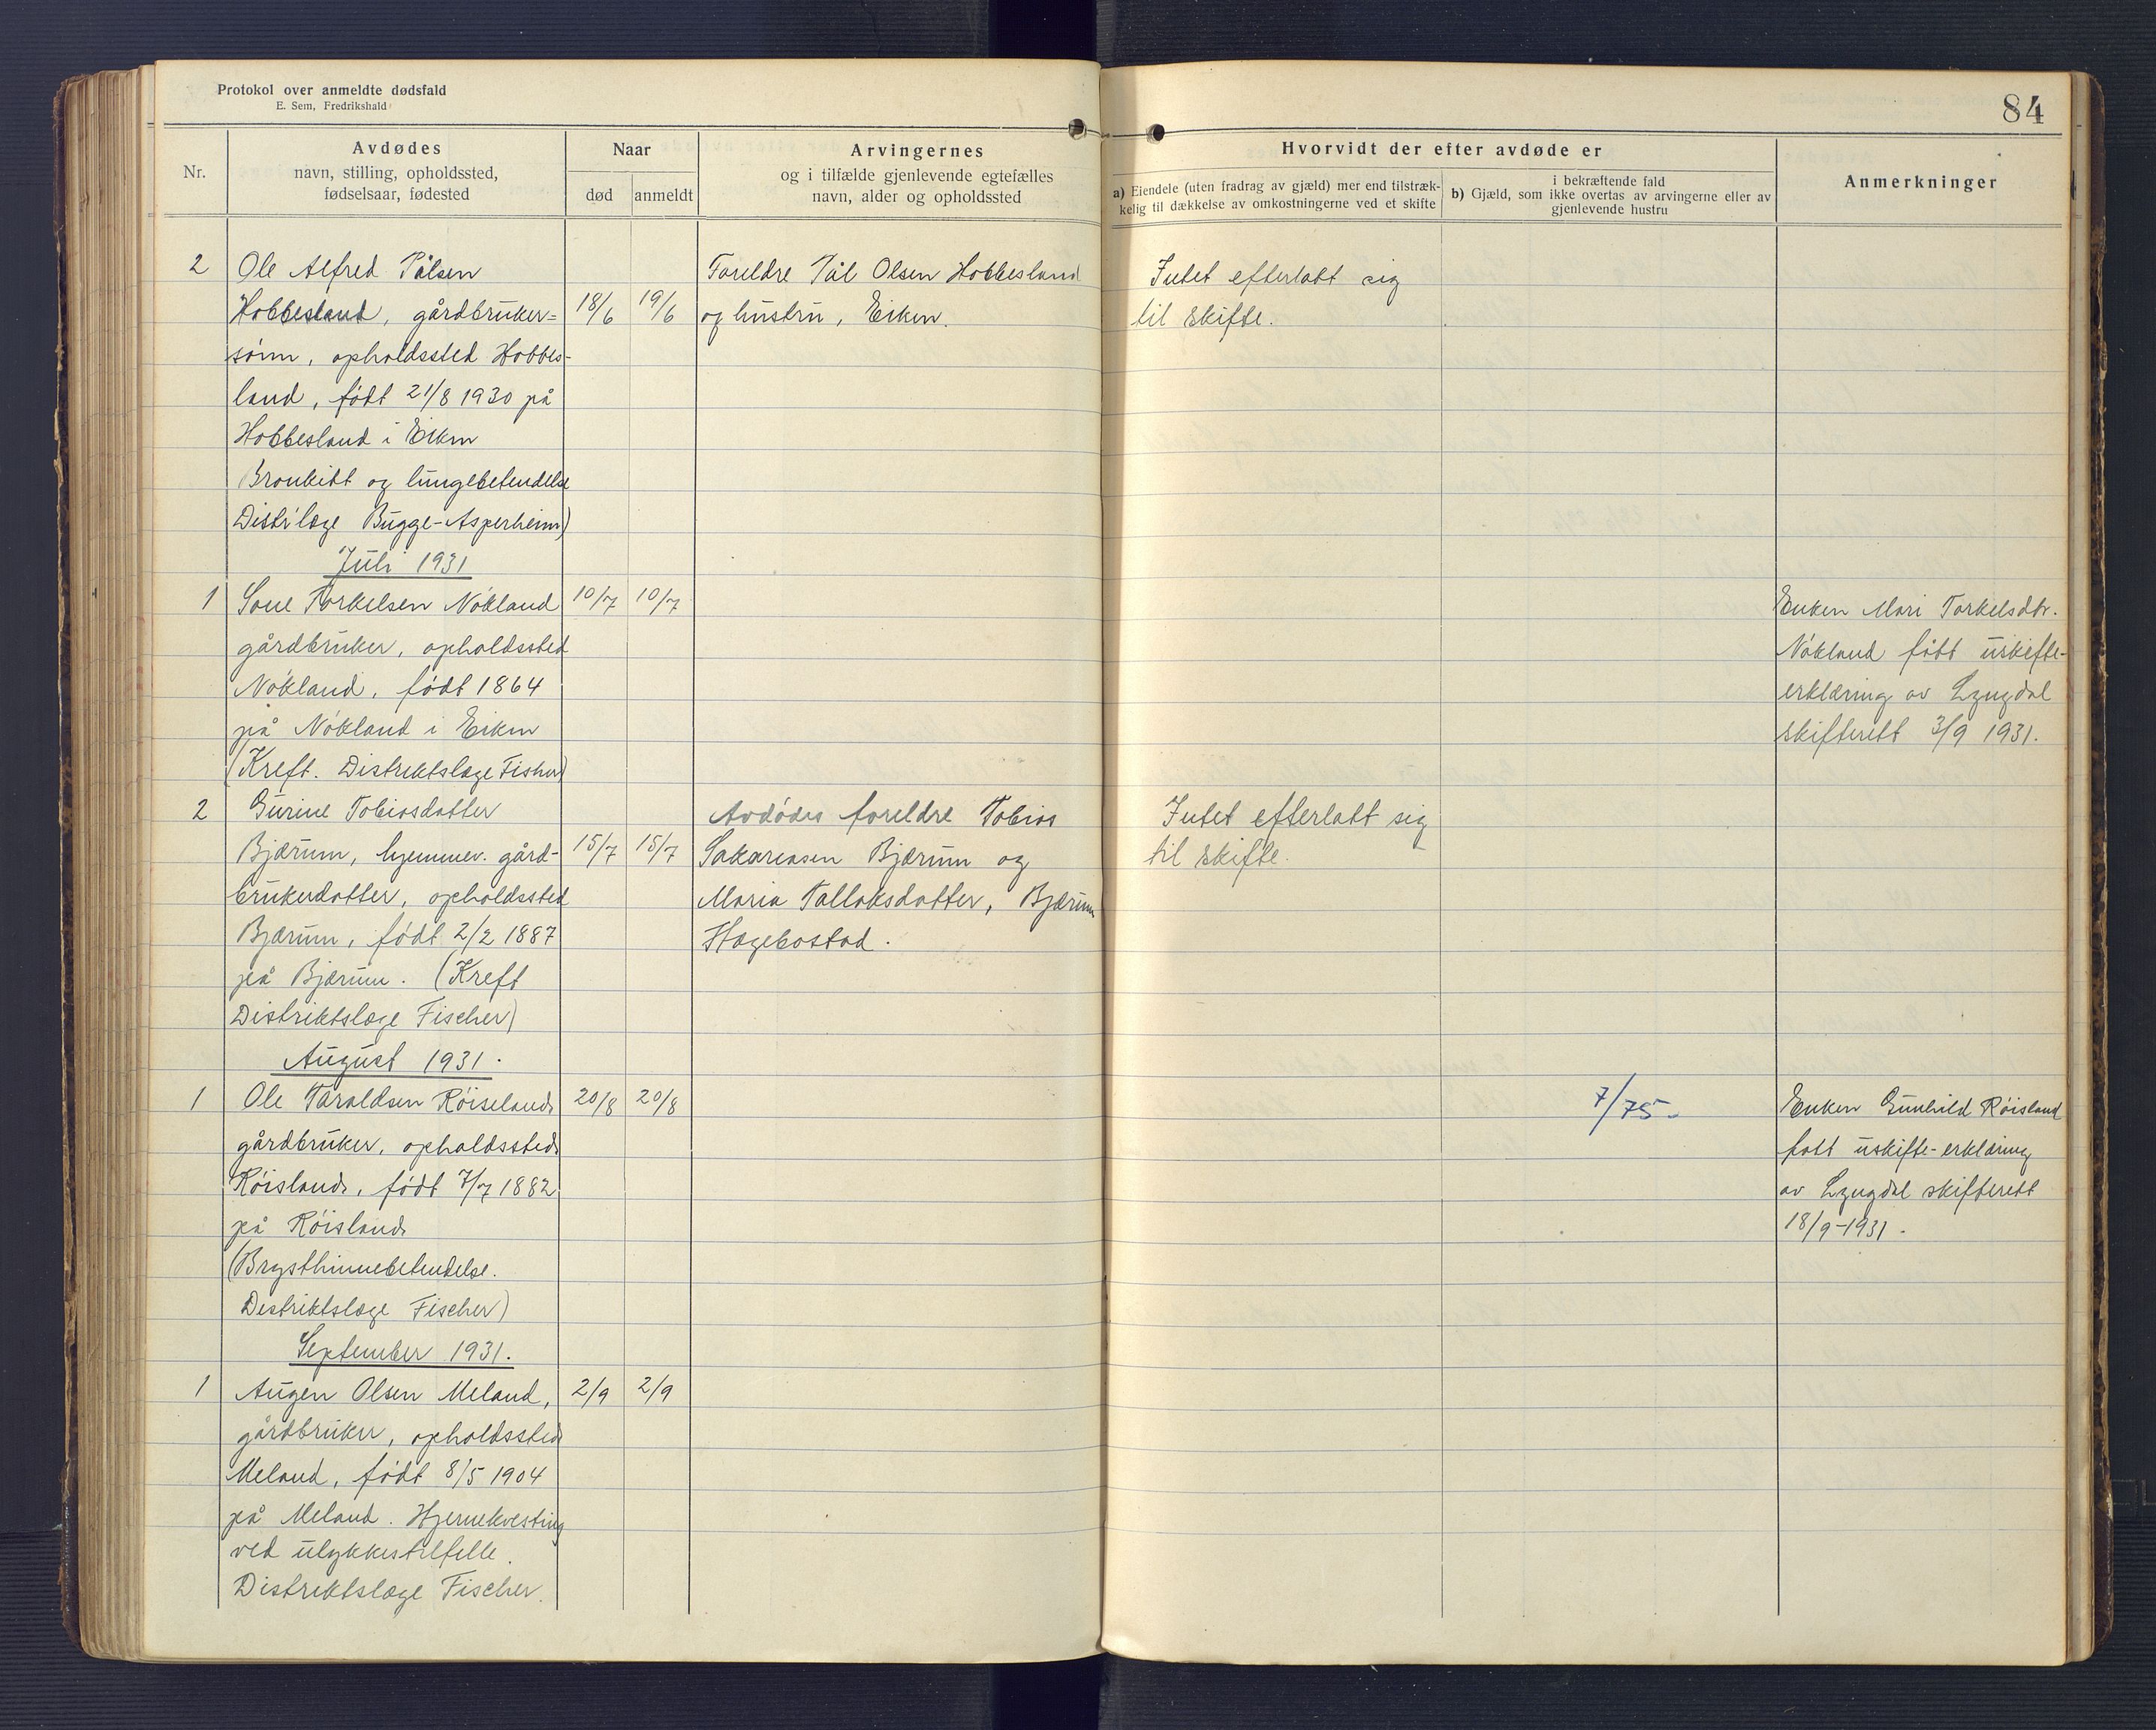 Protokol over anmeldte dødsfald
E. Sem, Fredrikshald
84
Nr.
Avdødes
navn, stilling, opholdssted,
fødselsaar, fødested
Naar
død
anmeldt
Arvingernes
og i tilfælde gjenlevende egtefælles
navn, alder og opholdssted
Hvorvidt der efter avdøde er
a) Eiendele (uten fradrag av gjæld) mer end tilstræk-
kelig til dækkelse av omkostningerne ved et skifte
b) Gjæld, som i bekræftende fald ikke overtas av arvingerne eller av
gjenlevende hustru
Anmerkninger
2 Ole Alfred Pålsen
Hobbesland, gårdbruker=
sønn, opholdssted Hobbes-
land, født 21/8 1930 på
Hobbesland i Eiken
Bronkitt og lungebetendelse
Distr.læge Bugge-Asperheim)
18/6 19/6
Foreldre Pål Olsen Hobbesland
og hustru, Eiken.
Intet efterlatt sig
til skifte.
Juli 1931
1 Sone Torkelsen Nökland
gårdbruker, opholdssted
Nökland, født 1864
på Nökland i Eiken
(Kreft. Distriktslæge Fisher)
10/7 10/7
Enken Mari Torkelsdtr.
Nökland fått uskifte-
erklæring av Lyngdal
skifterett 3/9 1931.
2 Gurine Tobiasdatter
Bjærum, hjemmev. gård-
brukerdatter, opholdssted
Bjærum, født 2/2 1887
på Bjærum. (Kreft
Distriktslæge Fischer)
15/7 15/7
Avdødes foreldre Tobias
Sakariasen Bjærum og
Maria Tallaksdatter, Bjærum
Hægebostad.
Intet efterlatt sig
til skifte.
August 1931.
1 Ole Taraldsen Röiseland
gårdbruker, opholdssted
Röisland, født 7/7 1882
på Röisland
(Brysthinnebetendelse.
Distriktslæge Fischer)
20/8 20/8
7/75-
Enken Gunhild Röisland
fått uskifte-erklæring
av Lyngdal skifterett
18/9-1931.
September 1931.
1 Augen Olsen Meland,
gårdbruker, opholdssted
Meland, født 8/5 1904
på Meland. Hjernekvesting
ved ulykkestilfelle.
Distriktslæge Fischer.
2/9 2/9